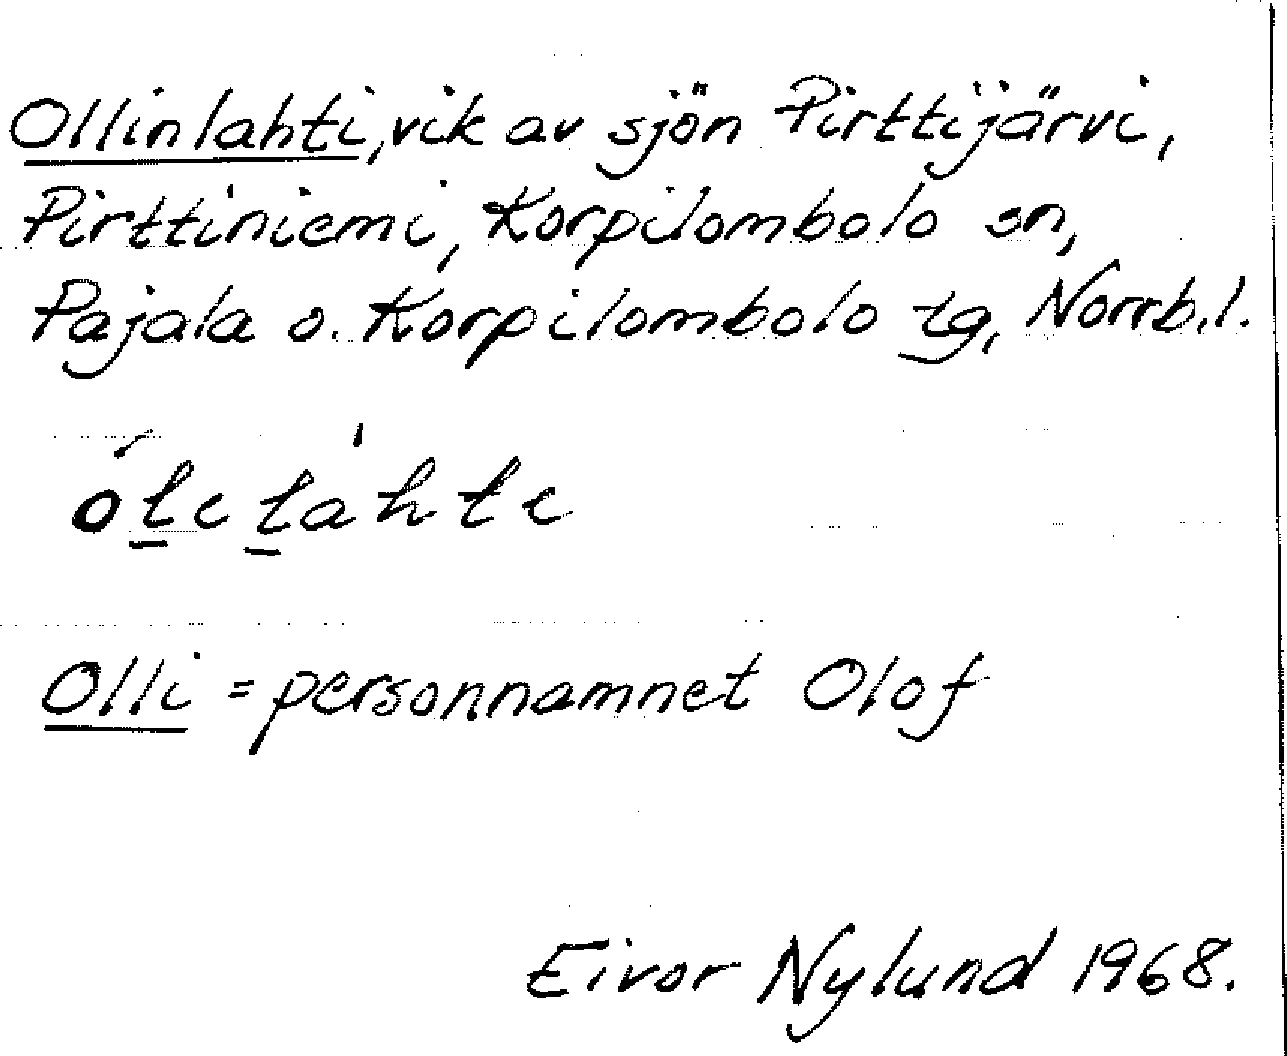 Ollinlahti, vik av sjön Pirttijärvi,
Pirttiniemi, Korpilombolo sn,
Pajala o. Korpilombolo tg, Norrb.l.
Olli = personnamnet Olof
Eivor Nylund 1968.